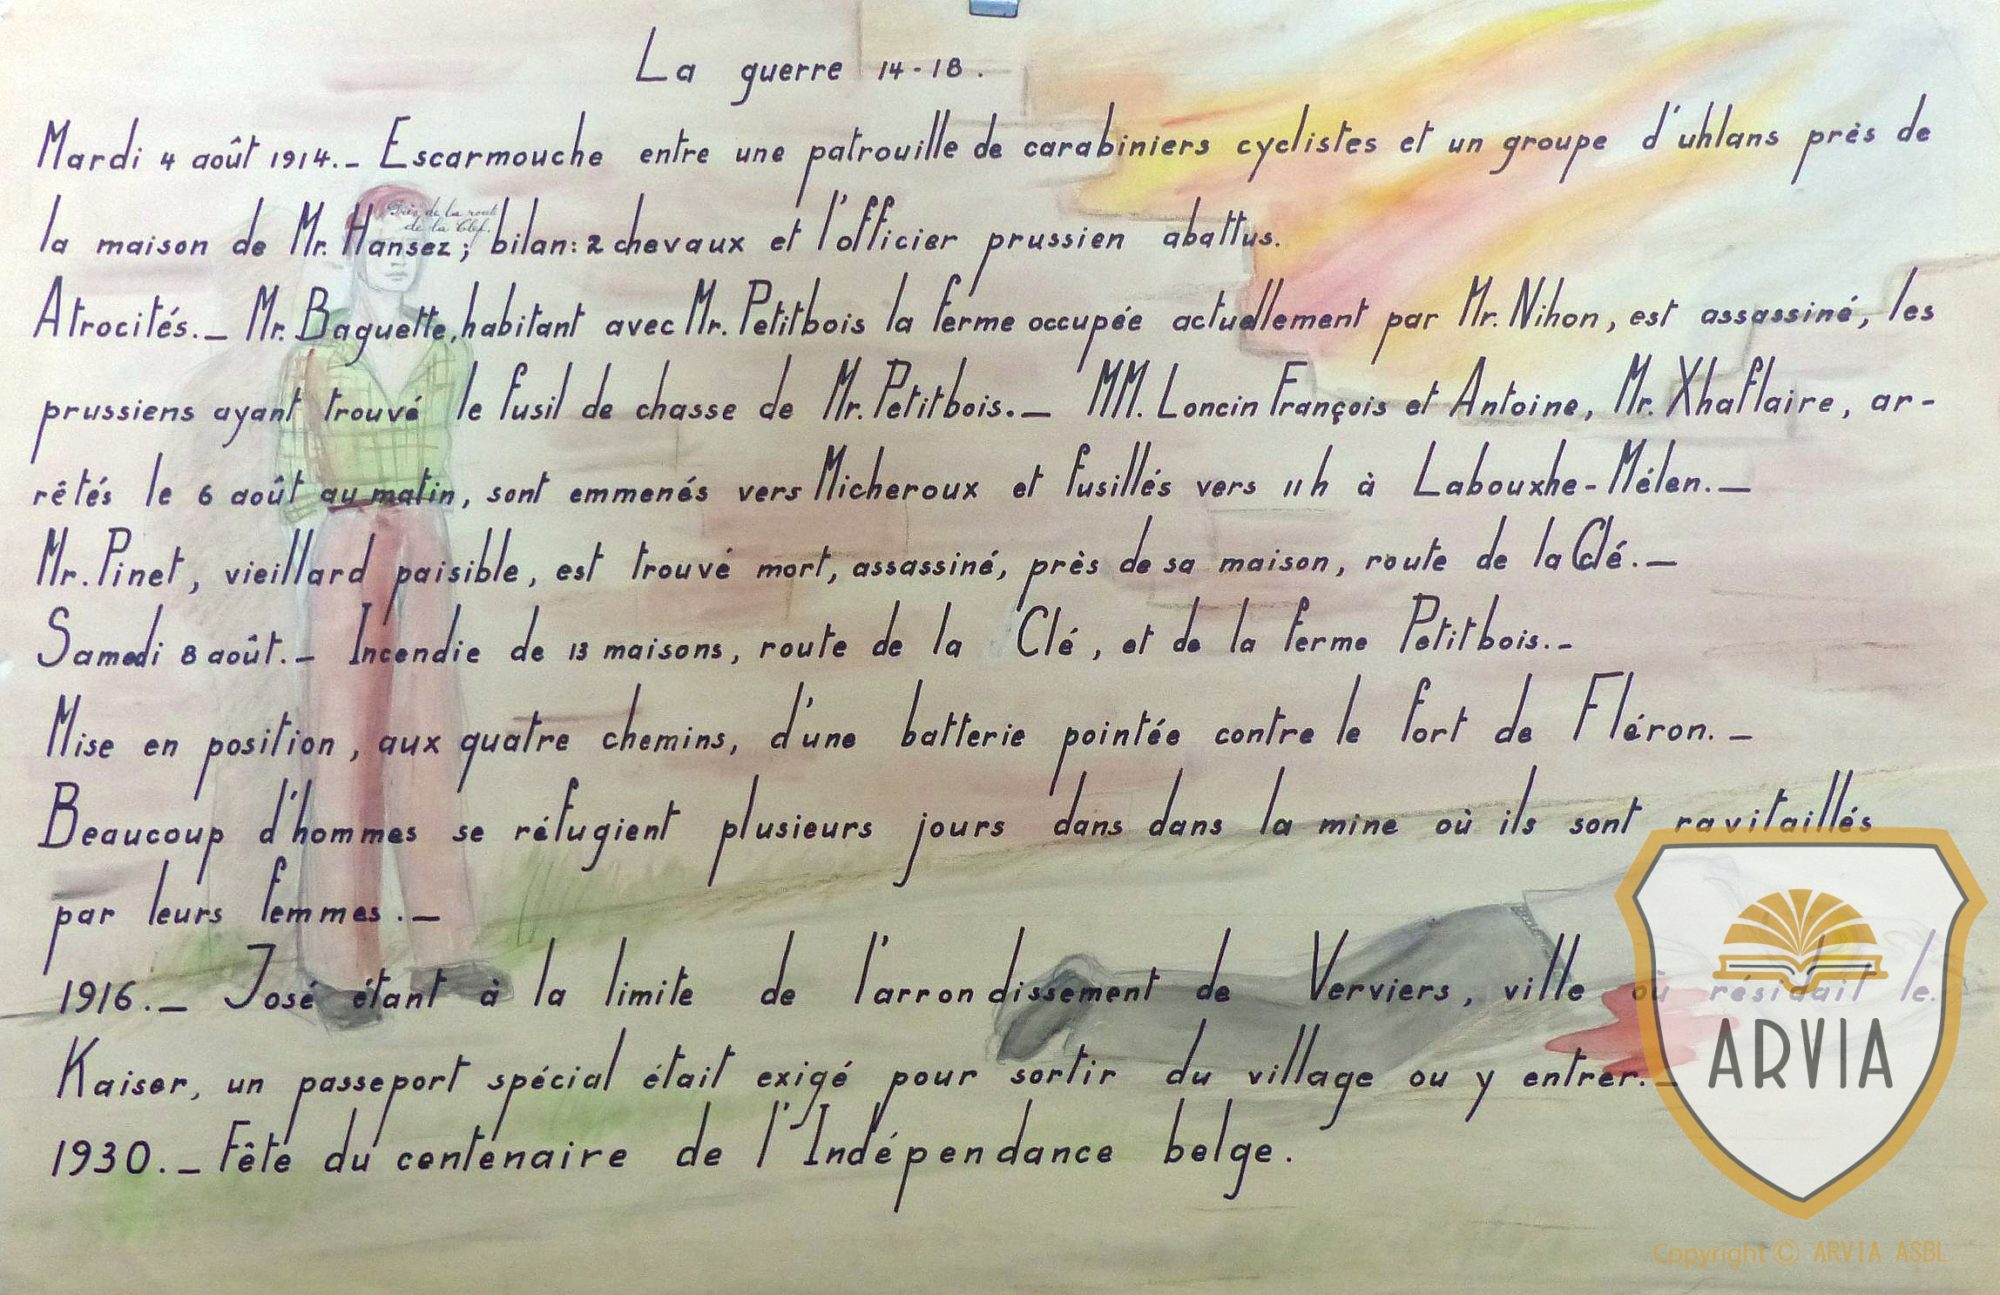 La guerre 14-18.
Mardi 4 août 1914._ Escarmouche entre une patrouille de carabiniers cyclistes et un groupe d'uhlans près de
Près de la route
de la Clef.
la maison de Mr. Hansez; bilan: 2 chevaux et l'officier prussien abattus.
Atrocités._ Mr. Baguette, habitant avec Mr. Petitbois la ferme occupée actuellement par Mr. Nihon, est assassiné, les
prussiens ayant trouvé le fusil de chasse de Mr. Petitbois._ MM. Loncin François et Antoine, Mr. Xhaflaire, ar-
rêtés le 6 août au matin, sont emmenés vers Micheroux et fusillés vers 11h à Labouxhe-Mélen._
Mr. Pinet, vieillard paisible, est trouvé mort, assassiné, près de sa maison, route de la Clé._
Samedi 8 août._ Incendie de 13 maisons, route de la Clé, et de la ferme Petitbois._
Mise en position, aux quatre chemins, d'une batterie pointée contre le fort de Fléron._
Beaucoup d'hommes se réfugient plusieurs jours dans dans la mine où ils sont ravitaillés
par leurs femmes._
1916._ José étant à la limite de l'arrondissement de Verviers, ville où résidait le
Kaiser, un passeport spécial était exigé pour sortir du village ou y entrer._
1930._ Fête du centenaire de l'Indépendance belge.
ARVIA
Copyright © ARVIA ASBL